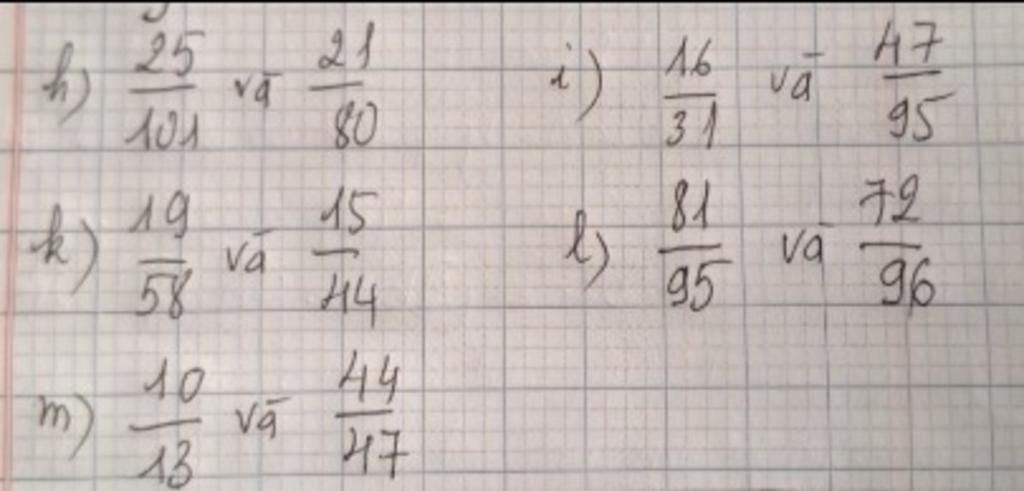 h) 25/101 và 21/80 i) 16/31 và 47/95
k) 19/58 và 15/44 l) 81/95 và 72/96
m) 10/13 và 44/47